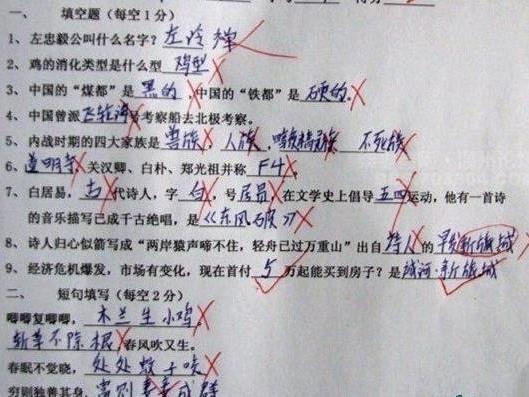 一、 填空题(每空1分)
1、左忠毅公叫什么名字?左冷禅
2、鸡的消化类型是什么型 鸡型
3、中国的“煤都”是 黑的 ,中国的“铁都”是 硬的.
4、中国曾派飞轮海号考察船去北极考察。
5、内战时期的四大家族是 兽族、人族、暗夜精灵族 不死族
6、道明寺、关汉卿、白朴、郑光祖并称 F4 。
7、白居易, 古 代诗人,字 白 ,号居易,在文学史上倡导五四运动,他有一首诗
的音乐描写已成千古绝唱,是《东风破》
8、诗人归心似箭写成“两岸猿声啼不住,轻舟已过万重山”出自 诗人 的 早发新版城
9、经济危机爆发,市场有变化,现在首付 5 万起能买到房子?是 城河·新版城
二、 短句填写(每空2分)
唧唧复唧唧, 木兰生小鸡.
斩草不除根 春风吹又生。
春眠不觉晓, 处处蚊子咬
穷则独善其身,富则妻妾成群